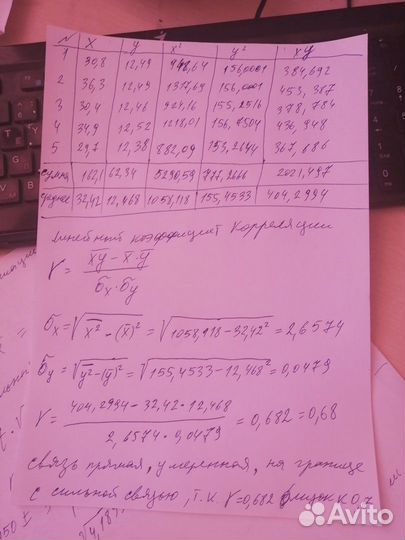 N x y x² y² xy
1 30,8 12,49 948,64 156,0001 384,692
2 36,3 12,49 1317,69 156,0001 453,387
3 30,4 12,46 924,16 155,2516 378,784
4 34,9 12,52 1218,01 156,7504 436,948
5 29,7 12,38 882,09 153,2644 367,686
сумма 162,1 62,34 5290,59 777,2666 2021,497
среднее 32,42 12,468 1058,118 155,4533 404,2994
линейный коэффициент корреляции
r = (xy - x·y) / (бx·бy)
бx = √(x² - (x)²) = √(1058,118 - 32,42²) = 2,6574
бy = √(y² - (y)²) = √(155,4533 - 12,468²) = 0,0479
r = (404,2994 - 32,42·12,468) / (2,6574·0,0479) = 0,682 = 0,68
связь прямая, умеренная, на границе
с сильной связью, т.к r=0,682 близок к 0,7
Avito